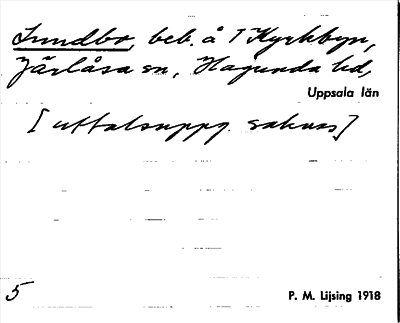 Lundbo, beb. å 1 Kyrkbyn,
Järlåsa sn, Hagunda hd,
Uppsala län
[uttalsuppg. saknas]
5
P. M. Lijsing 1918